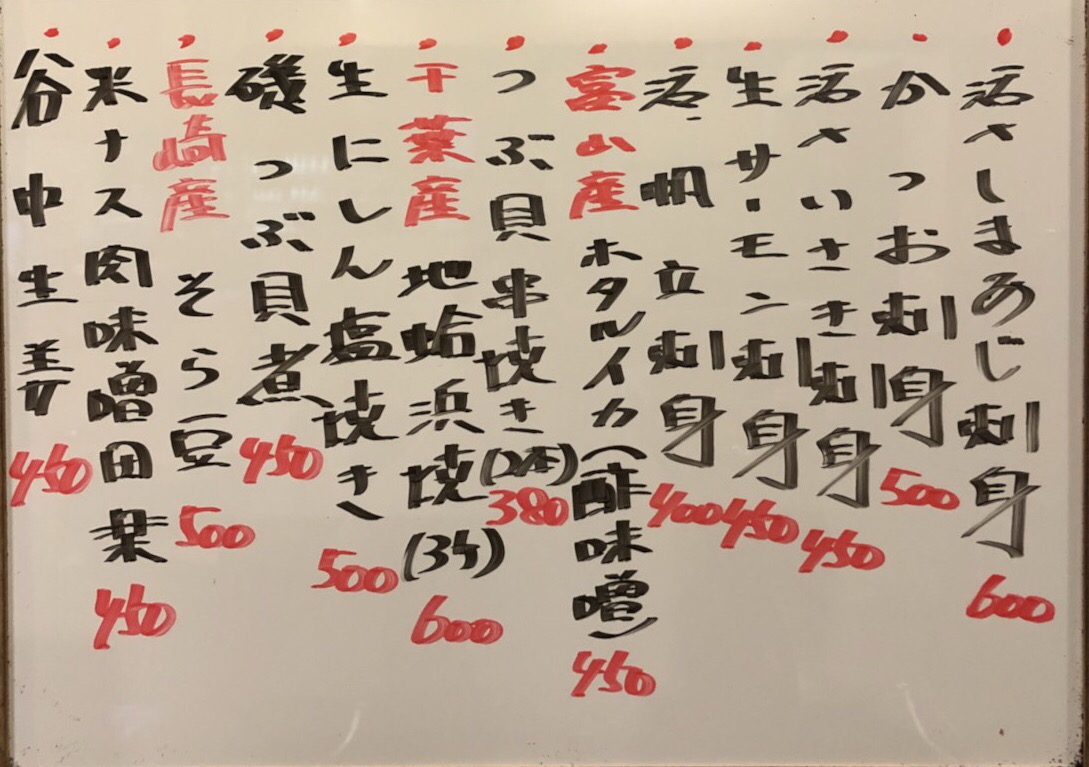 活〆しまあじ刺身 600
かつお刺身 500
活〆いさき刺身 450
生サーモン刺身 450
活帆立刺身 400
富山産ホタルイカ(酢味噌) 450
つぶ貝串焼き(2本) 380
千葉産地蛤浜焼(3ケ) 600
生にしん塩焼き 500
磯つぶ貝煮 450
長崎産そら豆 500
米ナス肉味噌田楽 450
谷中生姜 450